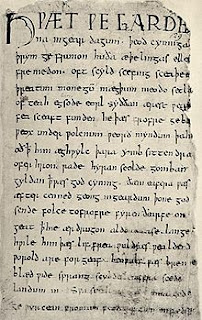 HǷÆT ǷE GARDE
na ingear dagum. þeod cyninga
þrym ge frunon huða æþelingas elle
fremedon. oft scyld scefing sceaþe
þreatum monegū mægþum meodo setla
of teah egsode eorl syððan ærest
fea sceaft funden he þæs frofre geba
ƿeox under ƿolcnum ƿeorð myndum þah
oð ꝥ him æghƿylc þara ymb sittendra
ofer hron rade hyran scolde gomban
gyldan ꝥ ƿæs god cyning. ðæm eafera ƿæs
æfter cenned geong in geardum þone god
sende folce tofrofre fyren ðearfe on
geat ꝥ hie ær drugon aldor ase. lange
hƿile him þæs lif frea ƿuldres ƿealdend
ƿorold are for geaf. beoƿulf ƿæs breme
blæd ƿide sprang scyldes eafera scede
landum in. Sƿa sceal gode
ge ƿyrcean fromum feoh giftum